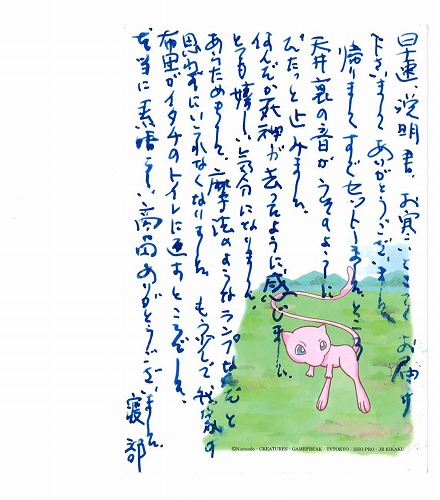 早速、説明書、お寅いところ、お届け
下さいましてありがとうございました。
帰りましてすぐセットしました。ところ
天井裏の音がうそのように
ぴたっと止みました。
何んだか死神が去ったように感じました。
とても嬉しい気分になりました。
あらためまして、魔法のようなランプだなんと
思わずにいられなくなりました。もう少しで我家の
布団がイタチのトイレに遭すところでした。
本当に素晴らしい商品ありがとうございました。
寝部
©Nintendo・CREATURES・GAMEFREAK・TVTOKYO・SHO-PRO・JR KIKAKU